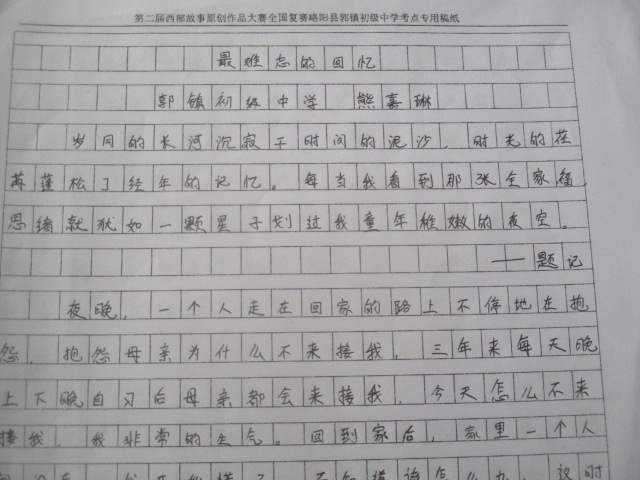 第二届西部故事原创作品大赛全国复赛略阳县郭镇初级中学考点专用稿纸
最难忘的回忆
郭镇初级中学 熊嘉琳
岁月的长河沉寂于时间的泥沙，时光的荏
苒蓬松了经年的记忆。每当我看到那张全家福，
思绪就犹如一颗星子划过我童年稚嫩的夜空。
——题记
夜晚，一个人走在回家的路上不停地在抱
怨，抱怨母亲为什么不来接我，三年来每天晚
上下晚自习后母亲都会来接我，今天怎么不来
接我，我非常的生气。回到家后，家里一个人